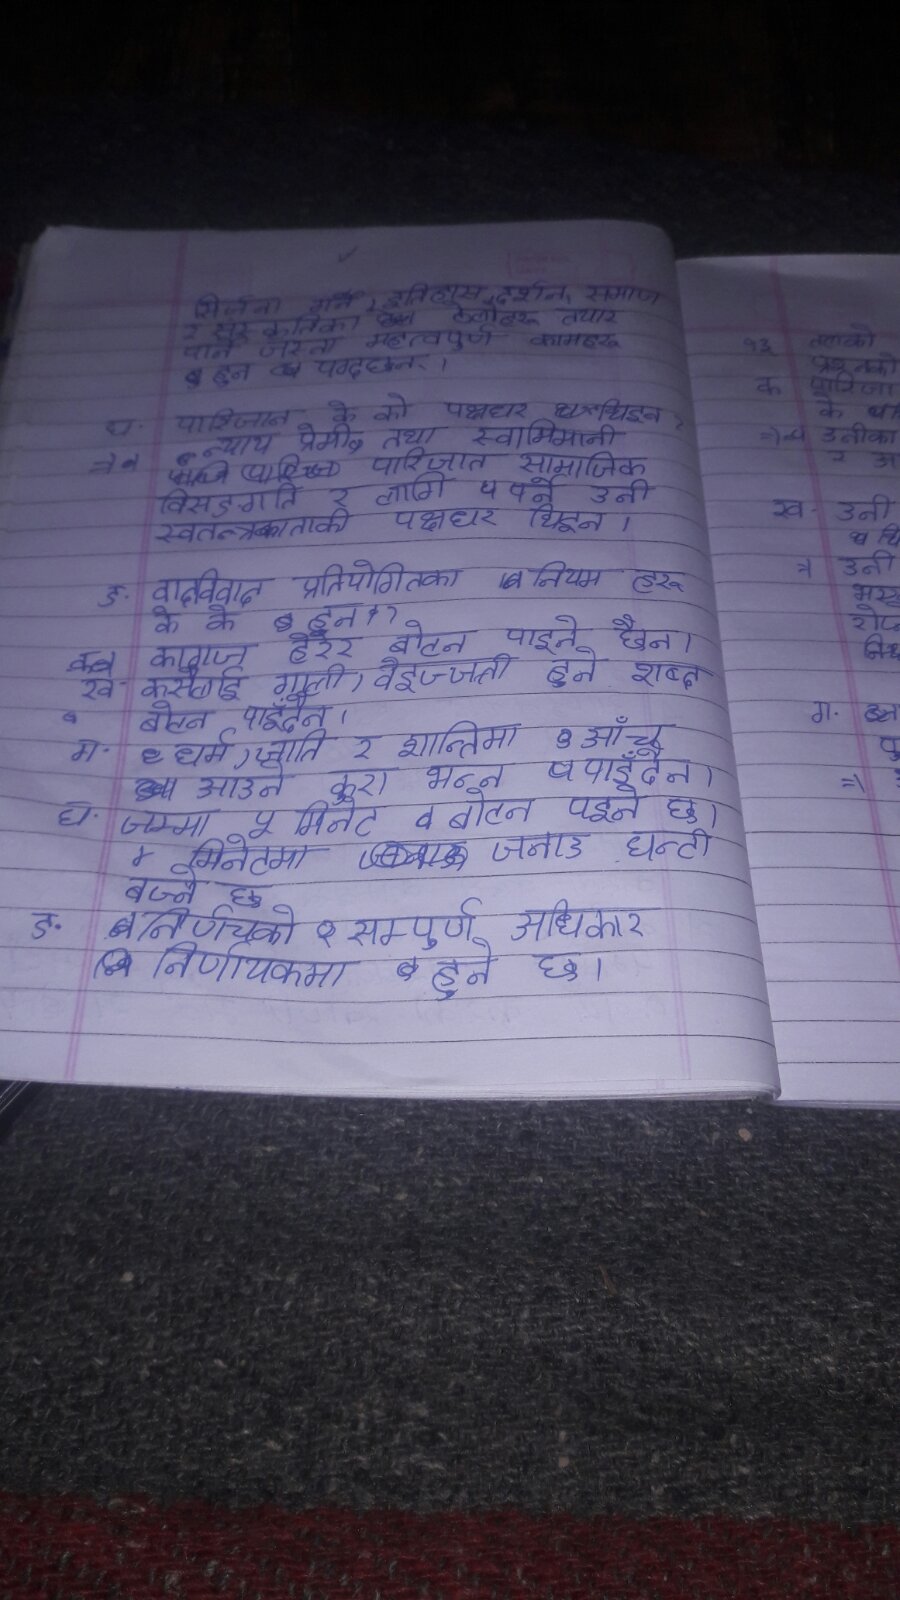 सिर्जना गर्ने, इतिहास, दर्शन, समाज
र संस्कृतिका तयार
पार्ने जस्ता महत्वपुर्ण कामहरू
हुन पर्दछन्।
घ. पारिजात के को पक्षधर थिइन ?
=> न्याय प्रेमी, तथा स्वाभिमानी
पारिजात सामाजिक
विसङ्गति र लागि पर्ने उनी
स्वतन्त्रकाताकी पक्षधर थिइन ।
ङ. वादविवाद प्रतियोगितका नियम हरू
के के हुन ?
क कागज हेरेर बोल्न पाइने छैन।
ख. कसैलाई गाली, वेइज्जती हुने शब्द
बोल्न पाइँदैन।
ग. धर्म, जाति र शान्तिमा आँच
आउने कुरा भन्न पाइँदैन।
घ. जम्मा ५ मिनेट बोल्न पइने छ।
४ मिनेटमा जनाउ घन्टी
बज्ने छ
ङ. निर्णयको सम्पुर्ण अधिकार
निर्णायकमा हुने छ।
१३ तलको
प्रश्नको
क पारिजा
के
=> उनीका
र अ
ख. उनी
थि
=> उनी
ग.
=>